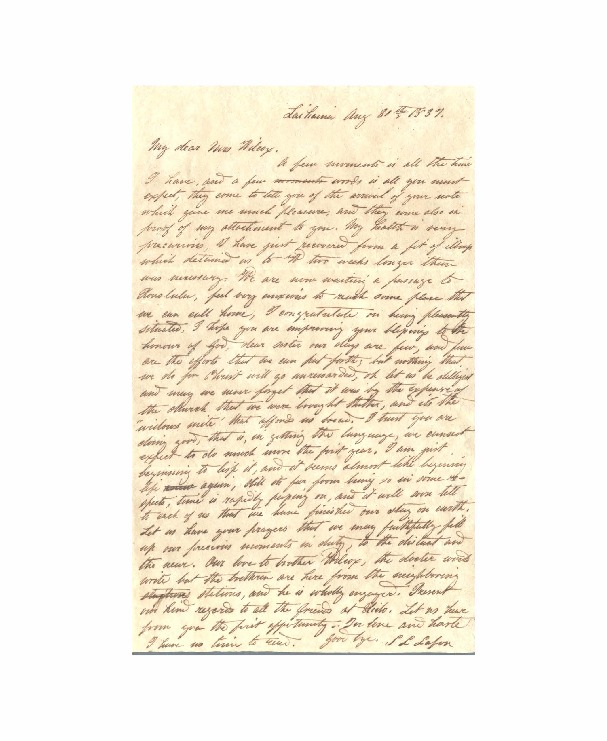 Lahaina Aug 31st 1837.
My dear Mrs Wilcox.
A few moments is all the time
I have, and a few moments words is all you must
expect, they come to tell you of the arrival of your note
which gave me much pleasure, and they come also in
proof of my attachment to you. My health is very
precarious, I have just recovered from a fit of illness
which detained us to two weeks longer then
was necessary. We are now waiting a passage to
Honolulu, feel very anxious to reach some place that
we can call home, I congratulate on being pleasantly
situated, I hope you are improving your blessings to the
honour of God, dear sister our days are few, and few
are the efforts that we can put forth, but nothing that
we do for Christ will go unrewarded, oh let us be diligent
and may we never forget that it was by the expense of
the church that we were brought thither, and its the
"widows mite" that affords us bread. I trust you are
doing good, that is, in getting the language, we cannot
expect to do much more the first year. I am just
beginning to lisp it, and it seems almost like beginning
life again, tho it far from being so in some re-
spects, time is rapidly passing on, and it will soon tell
to each of us that we have finished our stay on earth.
Let us have your prayers that we may faithfully fill
up our precious moments in duty, to the distant and
the near. Our love to brother Wilcox, the doctor would
write but the brethren are here from the neighboring
stations, and he is wholly engaged. Present
our kind regards to all the friends at Hilo. Let us hear
from you the first opportunity – In love and haste
I have no time to read. Good bye. S L Lafon